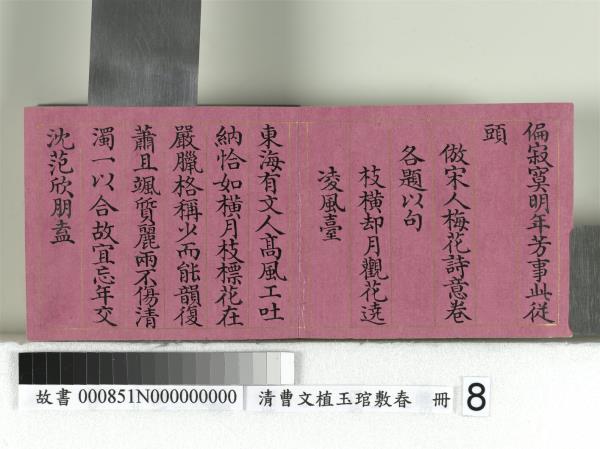 偏寂寞明年芳事此從
頭
倣宋人梅花詩意卷
各題以句
枝橫却月觀花遶
凌風臺
東海有文人高風工吐
納恰如橫月枝標花在
嚴臘格稱少而能韻復
蕭且颯質麗兩不傷清
濁一以合故宜忘年交
沈范欣朋盍
故書 000851N000000000 清曹文植玉琯敷春 冊 8